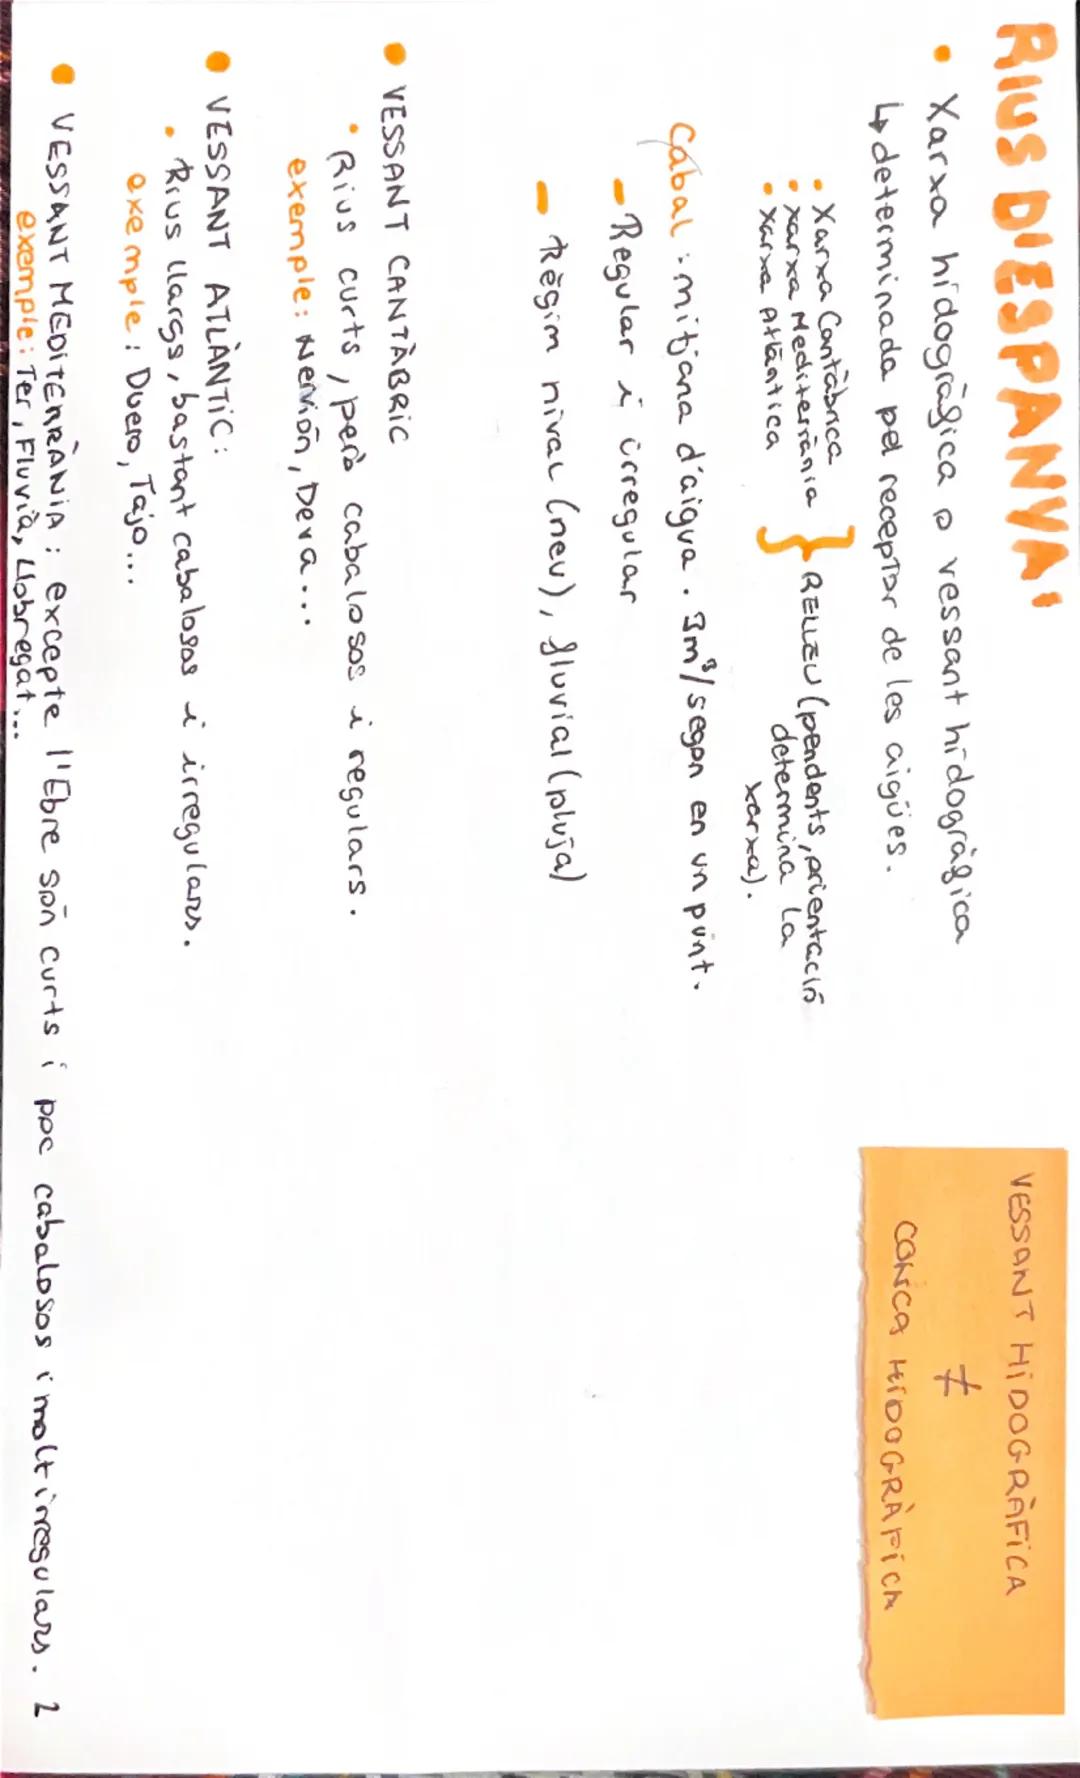 RIUS D'ESPANYA:
• Xarxa hidogràgica o vessant hidogràgica
↳ determinada pel receptor de les aigües.
• Xarxa Cantàbrica
• xarxa Mediterrània
• xarxa Atlàntica
} RELLEU (pendents, orientació
determina la
xarxa).
Cabal: mitjana d'aigua. 3m³/segon en un punt.
- Regular i irregular
- Règim nival (neu), fluvial (pluja)
• VESSANT CANTÀBRIC
• Rius curts, però cabalosos i regulars.
exemple: Nervión, Deva...
• VESSANT ATLÀNTIC:
• Rius llargs, bastant cabalosos i irregulars.
exemple: Duero, Tajo...
• VESSANT MEDITERRÀNIA: excepte l'Ebre són curts i poc cabalosos i molt irregulars. 2
exemple: Ter, Fluvià, Llobregat...
VESSANT HIDOGRÀFICA
≠
CONCA HIDOGRÀFICA